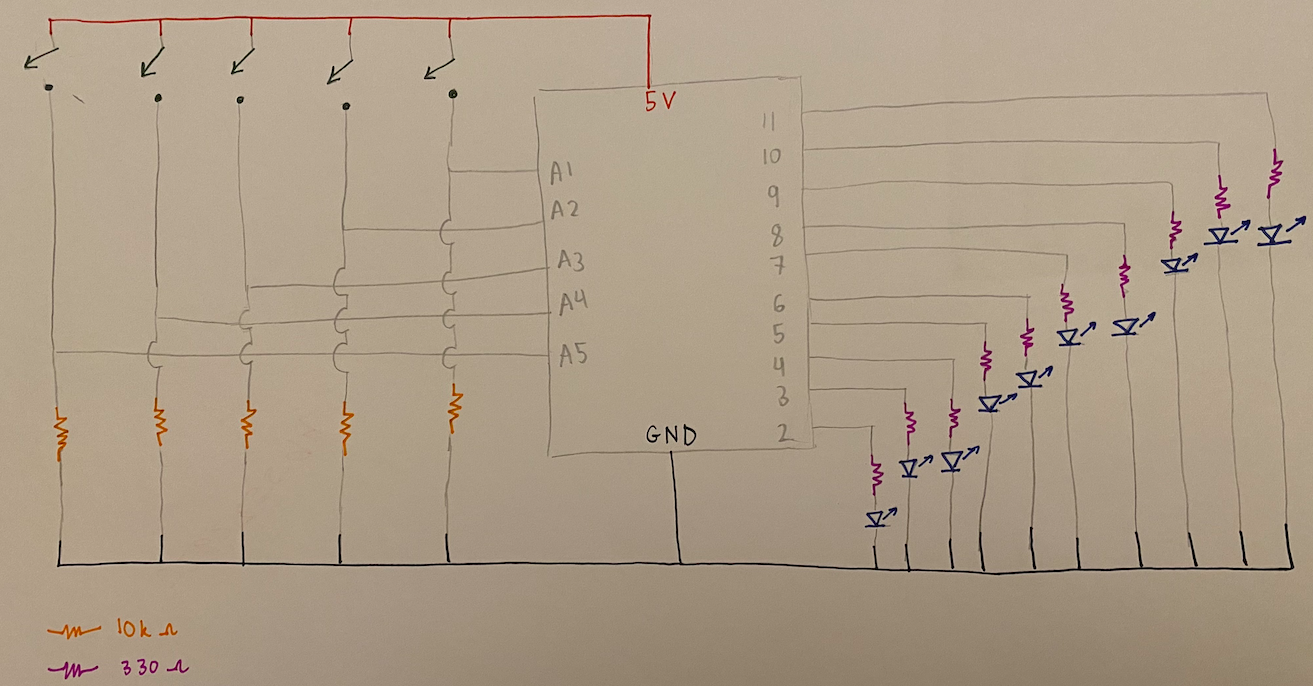 5V
A1
A2
A3
A4
A5
11
10
9
8
7
6
5
4
3
2
GND
10k Ω
330 Ω